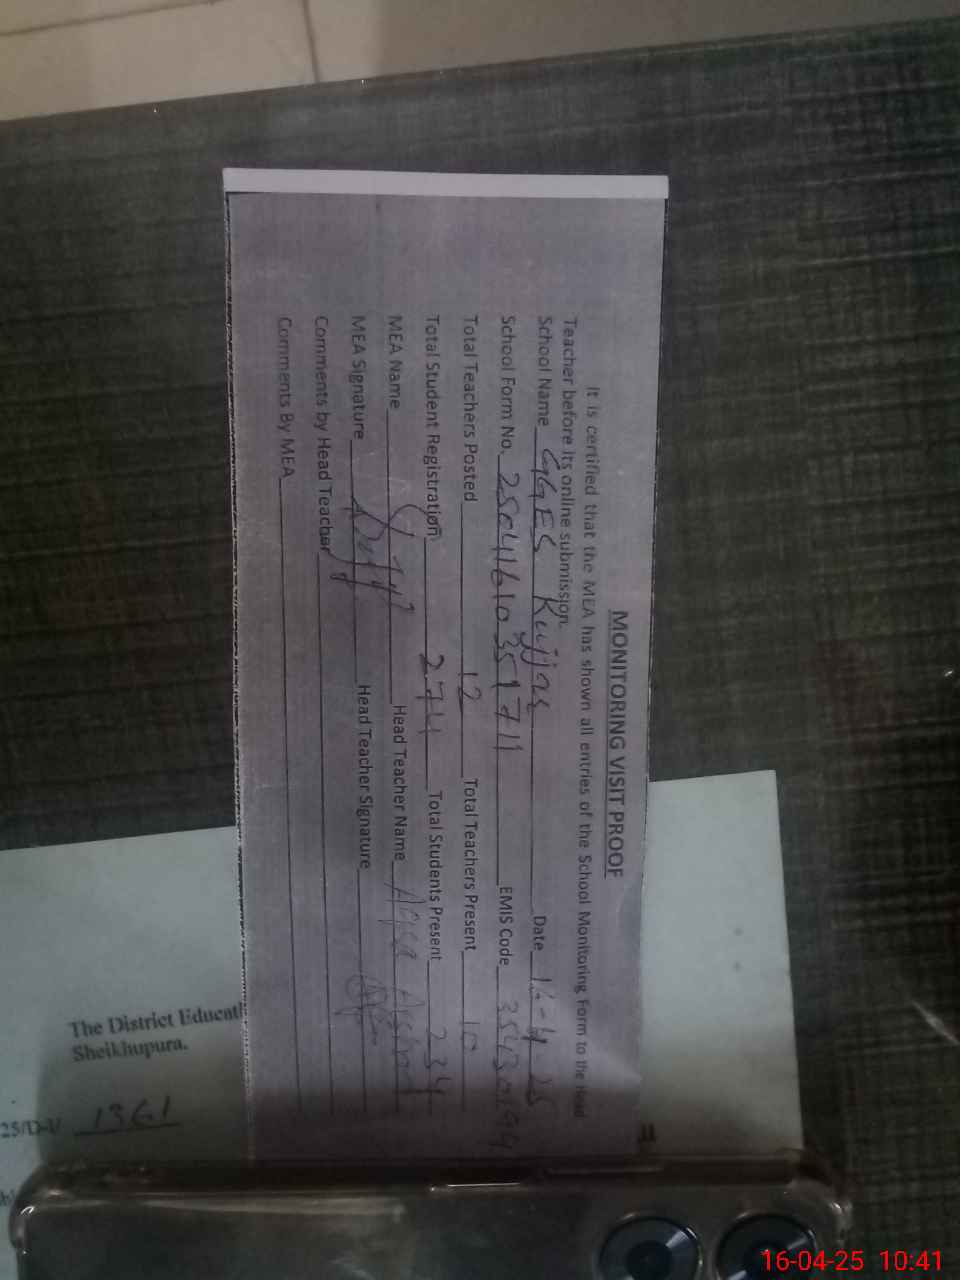 MONITORING VISIT PROOF
It is certified that the MEA has shown all entries of the School Monitoring Form to the Head
Teacher before its online submission.
School Name GGES Kujjar Date 16-4-25
School Form No. 25041610351711 EMIS Code 35430194
Total Teachers Posted 12 Total Teachers Present 10
Total Student Registration 274 Total Students Present 234
MEA Name Head Teacher Name Asghar
MEA Signature Head Teacher Signature
Comments by Head Teacher
Comments By MEA
The District Educati
Sheikhupura.
25/D-I/ 1361
16-04-25 10:41